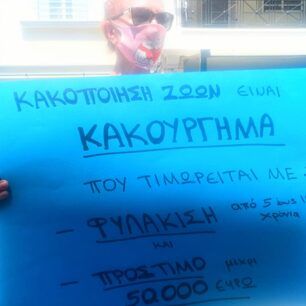 ΚΑΚΟΠΟΙΗΣΗ ΖΩΩΝ ΕΙΝΑΙ
ΚΑΚΟΥΡΓΗΜΑ
ΠΟΥ ΤΙΜΩΡΕΙΤΑΙ ΜΕ
- ΦΥΛΑΚΙΣΗ από 5 έως
χρόνια
ΚΑΙ
- ΠΡΟΣΤΙΜΟ μέχρι
50,000 ΕΥΡΩ